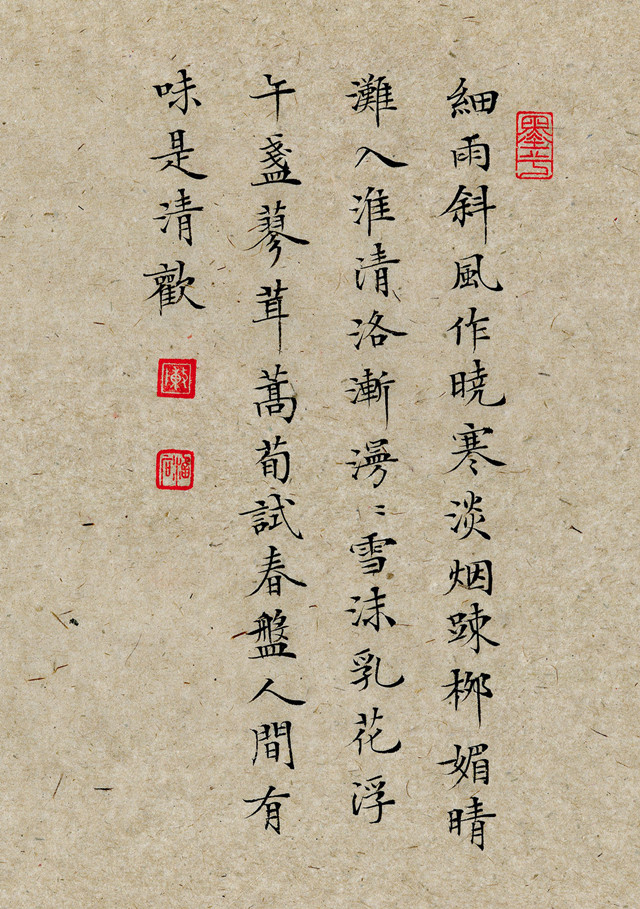 細雨斜風作曉寒淡烟踈栁媚晴
灘入淮清洛漸漫〻雪沫乳花浮
午盞蓼茸蒿荀試春盤人間有
味是清歡